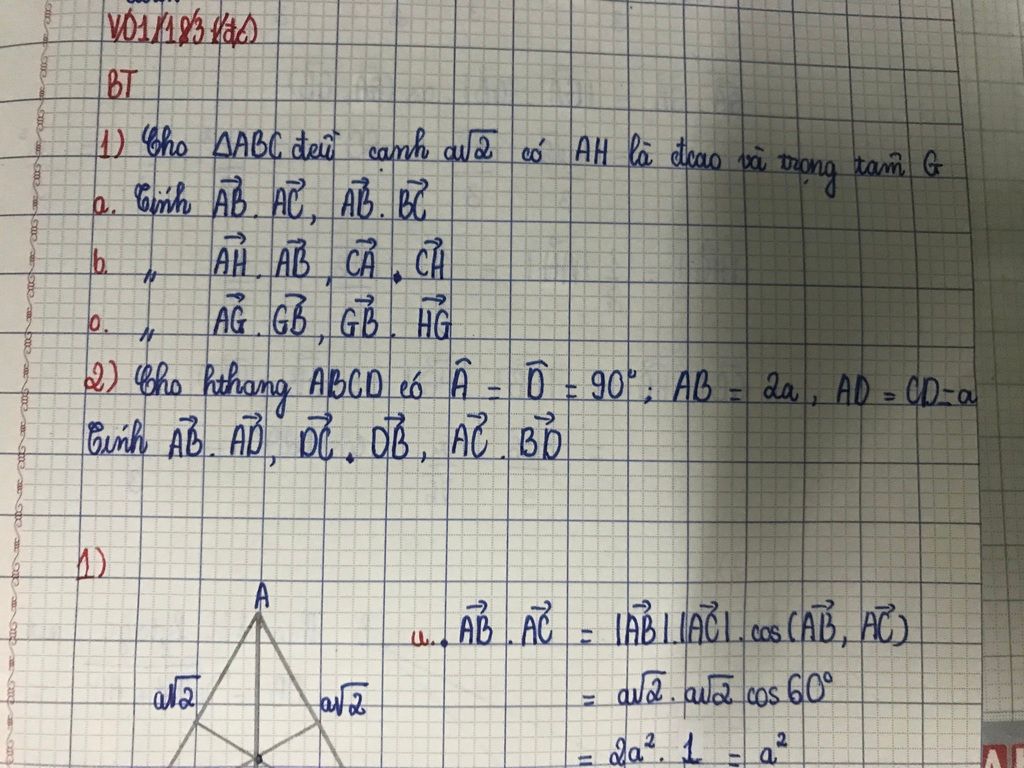 BT
1) Cho ΔABC đều cạnh a√2 có AH là đcao và trọng tâm G
a. Tính AB⃗. AC⃗, AB⃗. BC⃗
b. " AH⃗. AB⃗, CA⃗. CH⃗
c. " AG⃗. GB⃗, GB⃗. HG⃗
2) Cho hthang ABCD có Â = D̂ = 90°; AB = 2a, AD = CD = a
Tính AB⃗. AD⃗, DC⃗. DB⃗, AC⃗. BD⃗
1)
A
a. AB⃗. AC⃗ = |AB⃗|.|AC⃗|. cos(AB⃗, AC⃗)
a√2 a√2 = a√2. a√2 cos60°
= 2a². 1 = a²